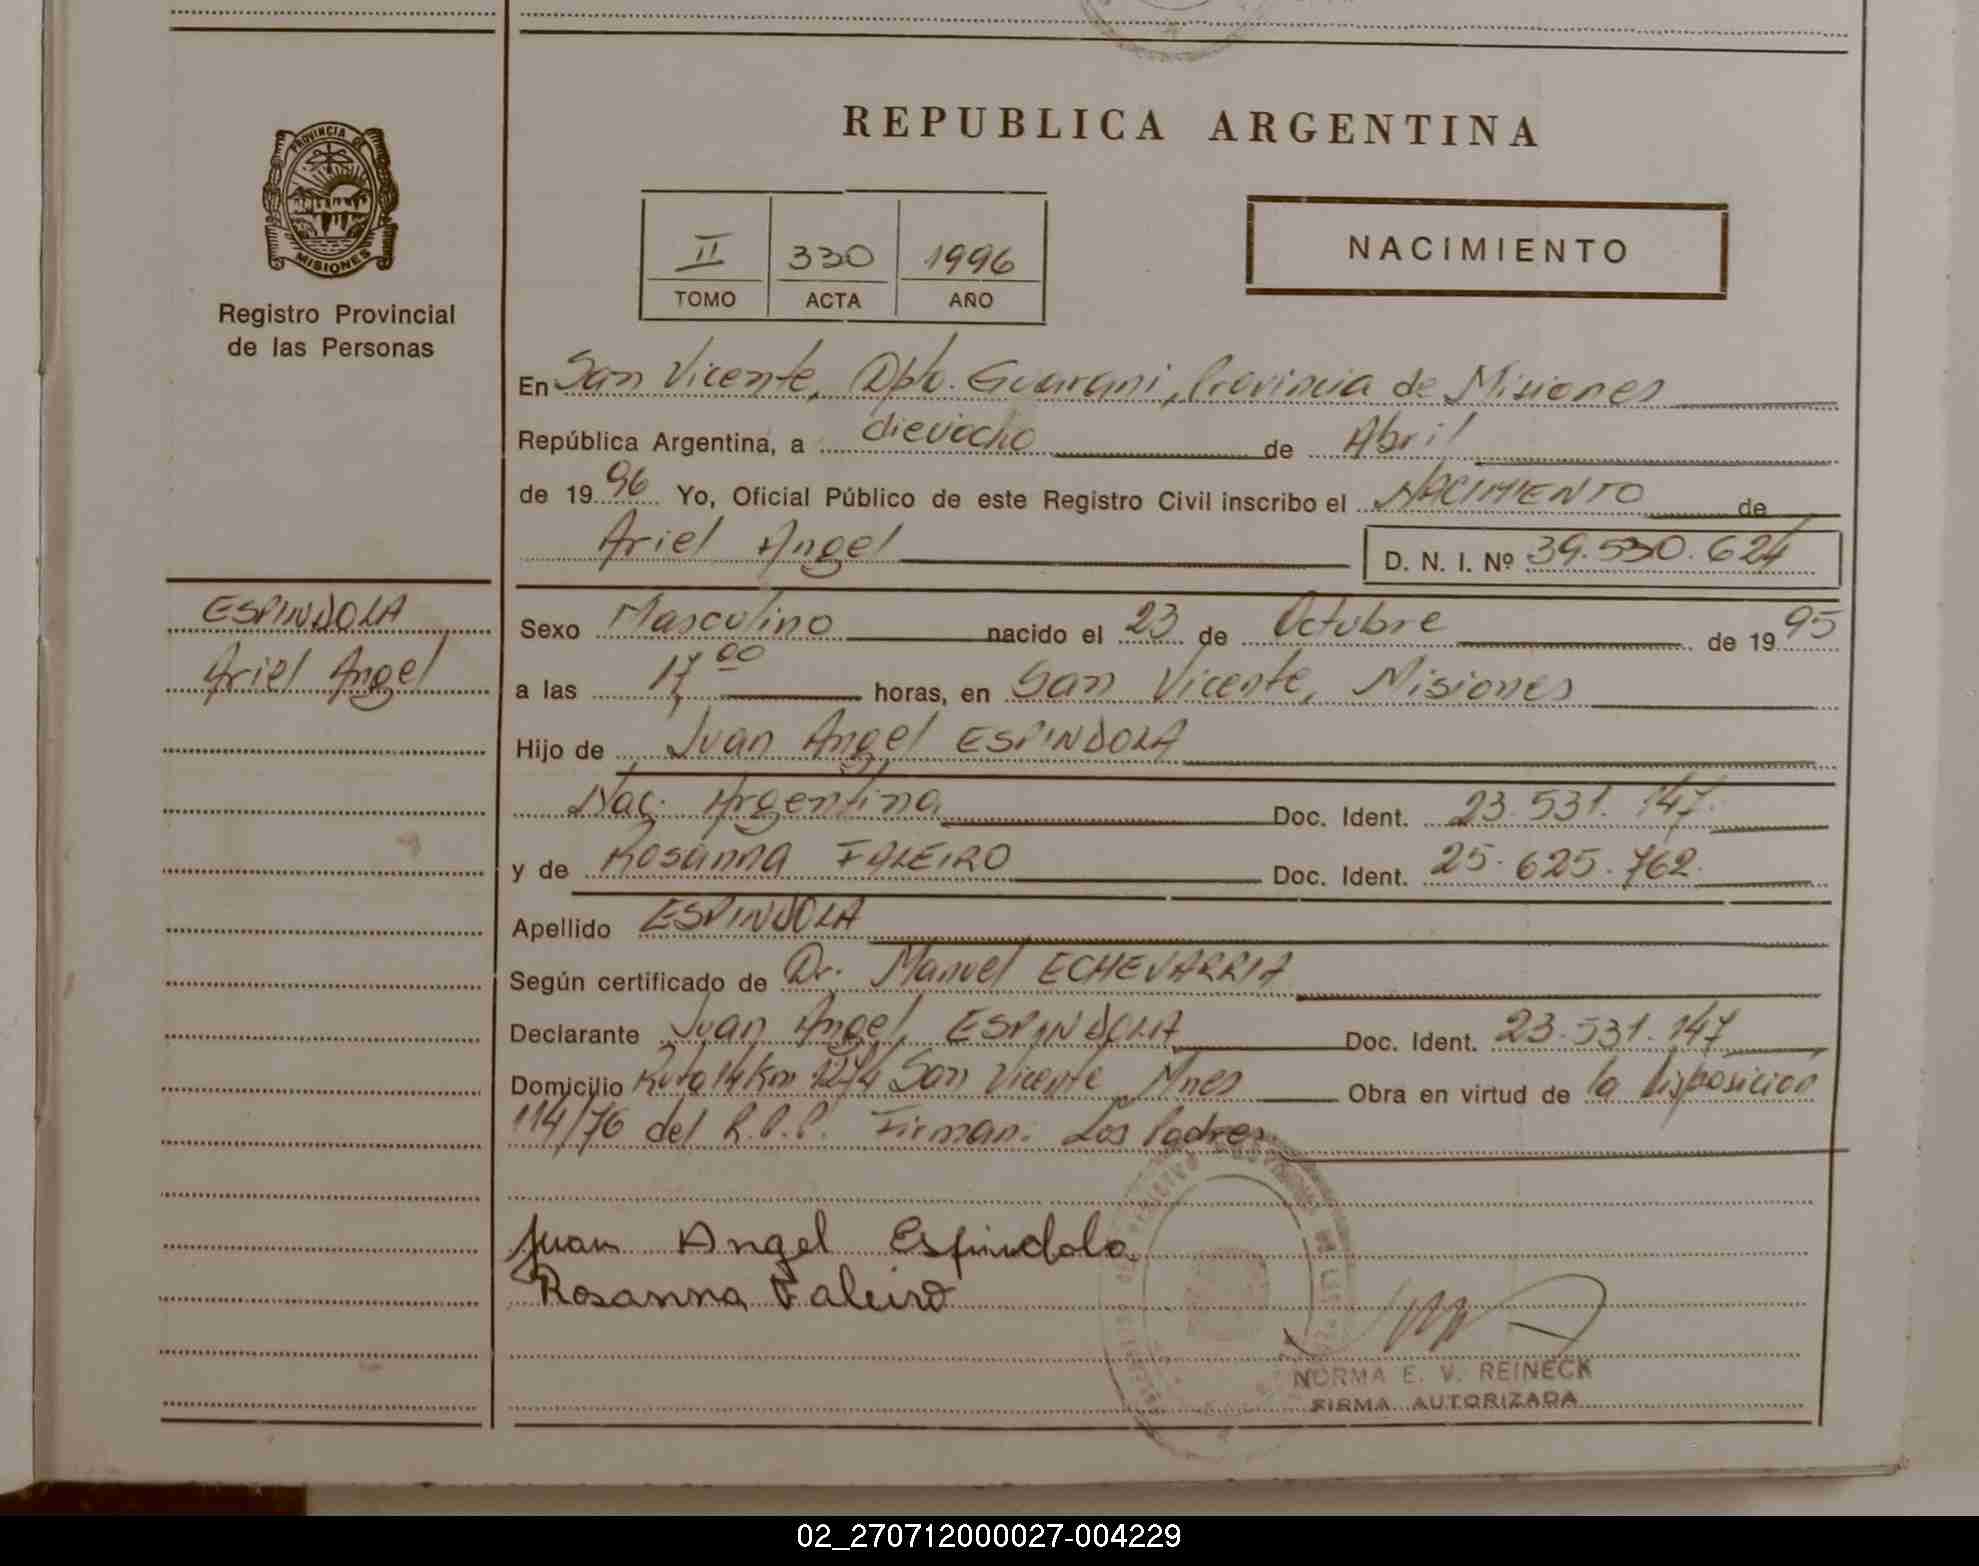 REPUBLICA ARGENTINA
PROVINCIA DE
MISIONES
Registro Provincial
de las Personas
II 330 1996
TOMO ACTA AÑO
NACIMIENTO
En San Vicente, Dpto. Guarani, Provincia de Misiones
República Argentina, a dieciocho de Abril
de 1996 Yo, Oficial Público de este Registro Civil inscribo el NACIMIENTO de
Ariel Angel D. N. I. Nº 39.530.624
ESPINDOLA
Ariel Angel
Sexo Masculino nacido el 23 de Octubre de 1995
a las 17 00 horas, en San Vicente, Misiones
Hijo de Juan Angel ESPINDOLA
Nac. Argentina Doc. Ident. 23.531.147.
y de Rosanna FALEIRO Doc. Ident. 25.625.762.
Apellido ESPINDOLA
Según certificado de Dr. Manuel ECHEVARRIA
Declarante Juan Angel ESPINDOLA Doc. Ident. 23.531.147
Domicilio Ruta 14 Km 1274 San Vicente Mnes Obra en virtud de la Disposicion
114/76 del R.P.P. Firman: Los Padres
Juan Angel Espindola
Rosanna Faleiro
NORMA E. V. REINECK
FIRMA AUTORIZADA
02_270712000027-004229